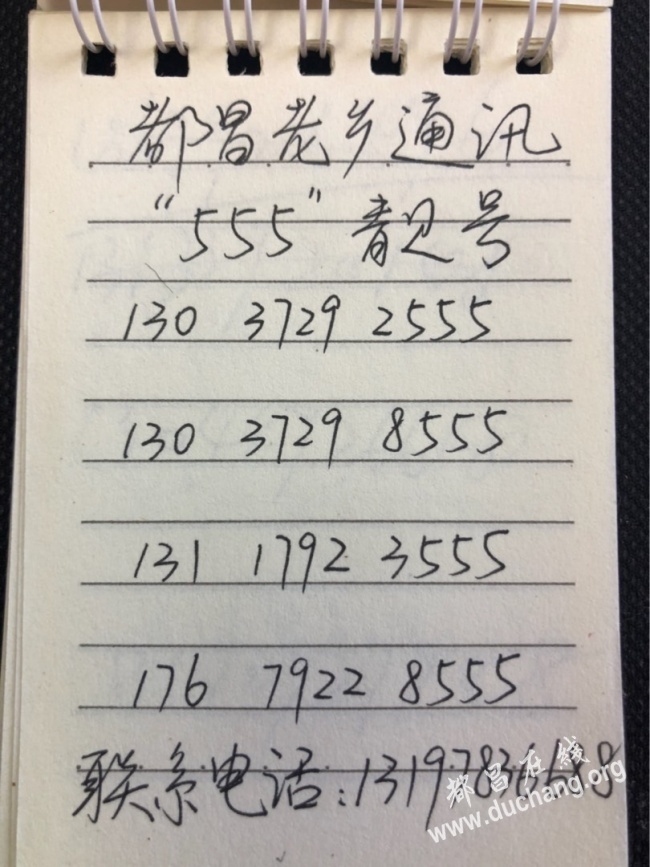 都昌老乡通讯
“555”靓号
130 3729 2555
130 3729 8555
131 1792 3555
176 7922 8555
联系电话:
都昌在线
www.duchang.org